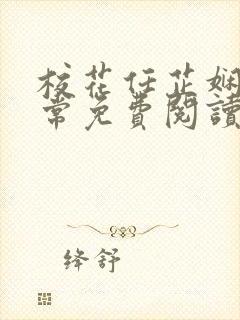 校花任芷娴
常免费閱讀
绛舒